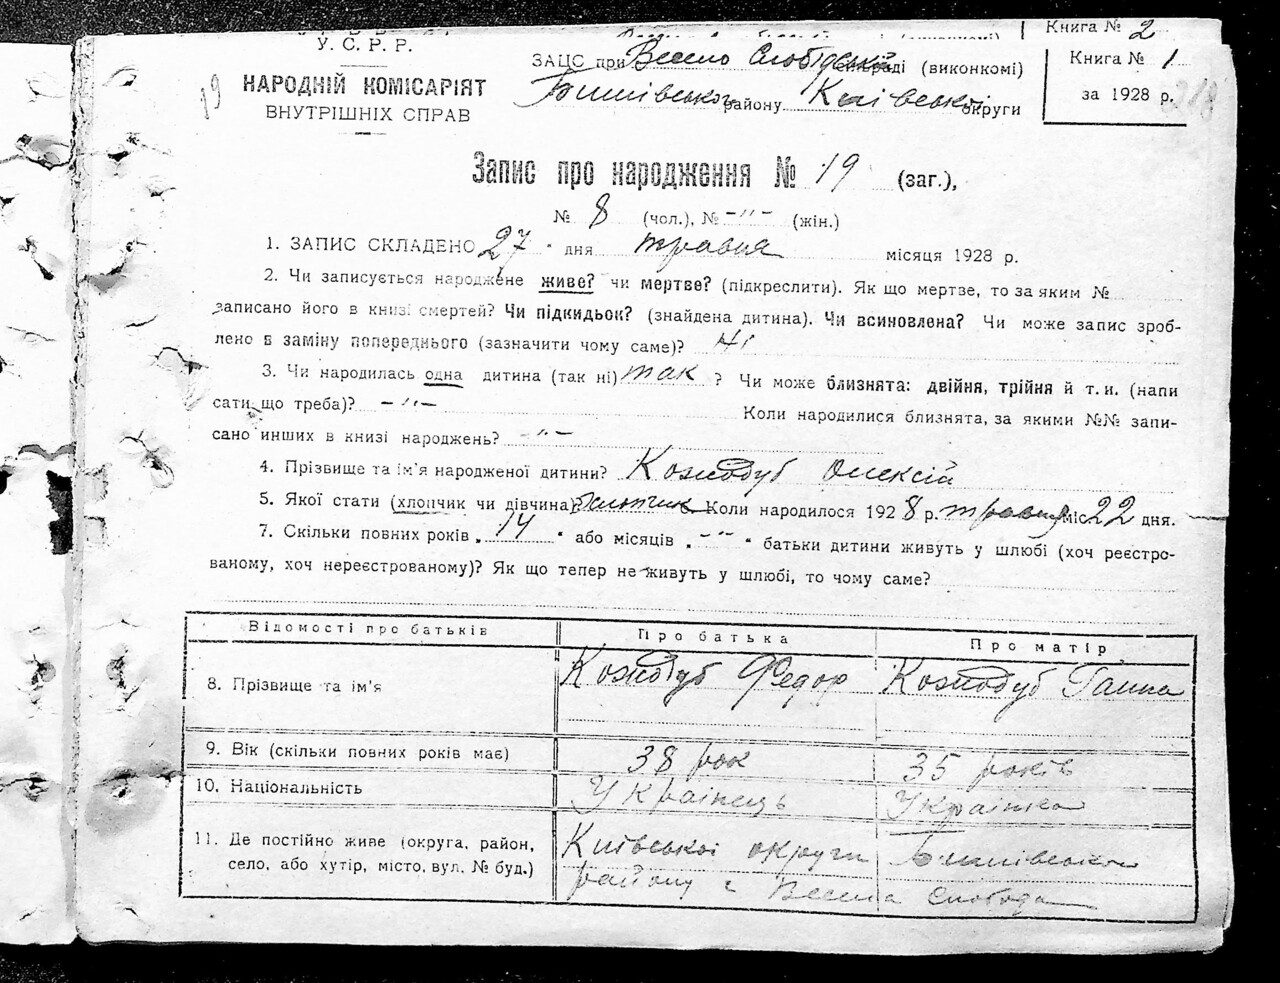 Книга № 2
У. С. Р. Р.
НАРОДНІЙ КОМІСАРІЯТ
ВНУТРІШНІХ СПРАВ
19
ЗАЦС при Весело Слобідській сільраді (виконкомі)
Бишівського району Київської округи
Книга № 1
за 1928 р.
Запис про народження № 19 (заг.),
№ 8 (чол.), № -"- (жін.)
1. ЗАПИС СКЛАДЕНО 27 " дня травня місяця 1928 р.
2. Чи записується народжене живе? чи мертве? (підкреслити). Як що мертве, то за яким №
записано його в книзі смертей? Чи підкидьок? (знайдена дитина). Чи всиновлена? Чи може запис зроб-
лено в заміну попереднього (зазначити чому саме)? Ні
3. Чи народилась одна дитина (так ні) так ? Чи може близнята: двійня, трійня й т. и. (напи
сати що треба)? -"- Коли народилися близнята, за якими №№ запи-
сано инших в книзі народжень? -"-
4. Прізвище та ім'я народженої дитини? Козподуб Олексій
5. Якої стати (хлопчик чи дівчина)? Хлопчик Коли народилося 1928 р. травня міс 22 дня.
7. Скільки повних років „ 14 " або місяців „ -"- " батьки дитини живуть у шлюбі (хоч реєстро-
ваному, хоч нереєстрованому)? Як що тепер не живуть у шлюбі, то чому саме?
Відомості про батьків Про батька Про матір
8. Прізвище та ім'я Козподуб Федор Козподуб Ганна
9. Вік (скільки повних років має) 38 рок 35 років
10. Національність Українець Українка
11. Де постійно живе (округа, район, Київської округи Бишівського
село, або хутір, місто, вул. № буд.) району с Весела Слобода